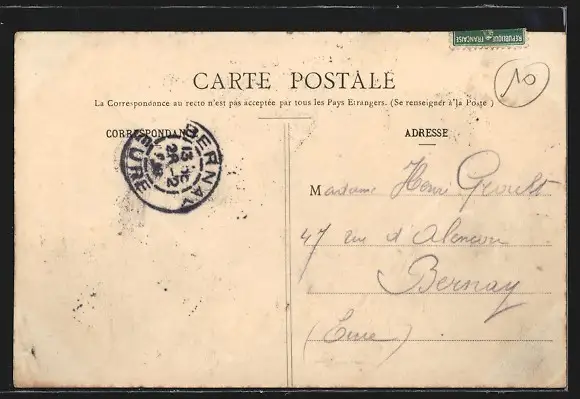 REPUBLIQUE FRANÇAISE
10
CARTE POSTALE
La Correspondance au recto n'est pas acceptée par tous les Pays Etrangers. (Se renseigner à la Poste)
CORRESPONDANCE
ADRESSE
BERNAY
EURE
Madame Henri
47 rue d'Alencon
Bernay
(Eure)